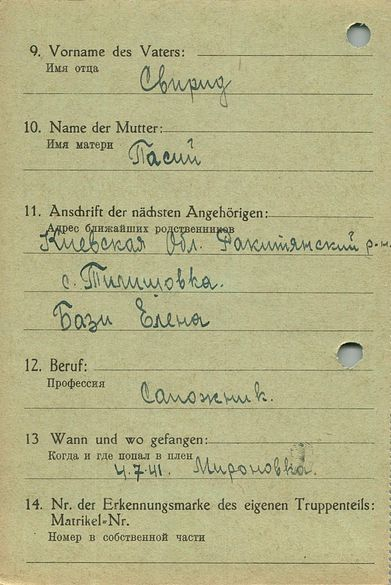 9. Vorname des Vaters:
Имя отца
Свирид
10. Name der Mutter:
Имя матери
Пасий
11. Anschrift der nächsten Angehörigen:
Адрес ближайших родственников
Киевская Обл. Ракитянский р-н
с. Телешовка.
Бази Елена
12. Beruf:
Профессия
Сапожник.
13 Wann und wo gefangen:
Когда и где попал в плен
4.7.41. Мироновка.
14. Nr. der Erkennungsmarke des eigenen Truppenteils:
Matrikel-Nr.
Номер в собственной части